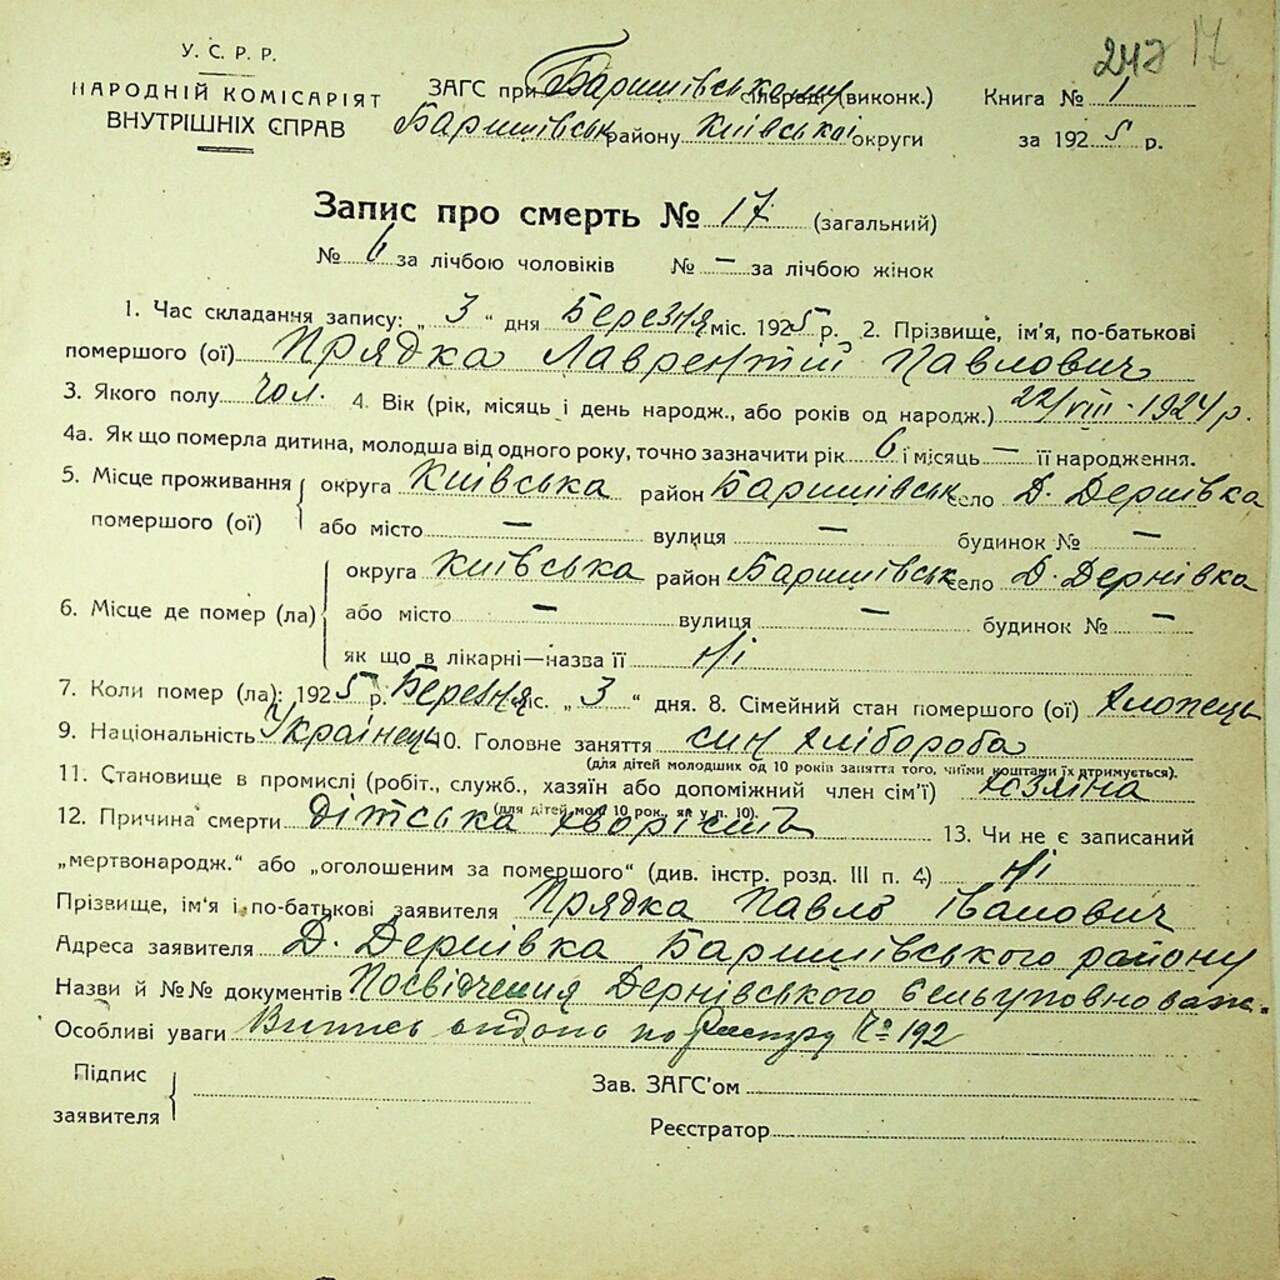 17
У. С. Р. Р.
НАРОДНІЙ КОМІСАРІЯТ
ВНУТРІШНІХ СПРАВ
ЗАГС при Баришівському сільраді (виконк.)
Баришівськ району Київської округи
Книга № 1
за 1925 р.
Запис про смерть № 17 (загальний)
№ 6 за лічбою чоловіків № — за лічбою жінок
1. Час складання запису: „ 3 “ дня Березня міс. 1925 р. 2. Прізвище, ім'я, по-батькові
помершого (ої) Прядка Лаврентій Павлович
3. Якого полу чол. 4. Вік (рік, місяць і день народж., або років од народж.) 22/VIII - 1924 р.
4а. Як що померла дитина, молодша від одного року, точно зазначити рік 6 і місяць — її народження.
5. Місце проживання помершого (ої) округа Київська район Баришівськ село Д. Дернівка
або місто — вулиця — будинок № —
6. Місце де помер (ла) округа Київська район Баришівськ село Д. Дернівка
або місто — вулиця — будинок № —
як що в лікарні—назва її Ні
7. Коли помер (ла): 1925 р. Березня міс. „ 3 “ дня. 8. Сімейний стан помершого (ої) хлопець
9. Національність Українець 10. Головне заняття син хлібороба
(для дітей молодших од 10 років заняття того, чиїми коштами їх дтримується).
11. Становище в промислі (робіт., служб., хазяїн або допоміжний член сім'ї) хозяїна
(для дітей мол. 10 рок., як у п. 10).
12. Причина смерти дітська хворість 13. Чи не є записаний
„мертвонародж.“ або „оголошеним за помершого“ (див. інстр. розд. III п. 4) Ні
Прізвище, ім'я і по-батькові заявителя Прядка Павло Іванович
Адреса заявителя Д. Дернівка Баришівського району
Назви й №№ документів Посвідчення Дернівського сельуповноваж.
Особливі уваги Випись видано по Реєстру № 192
Підпис заявителя
Зав. ЗАГС'ом
Реєстратор